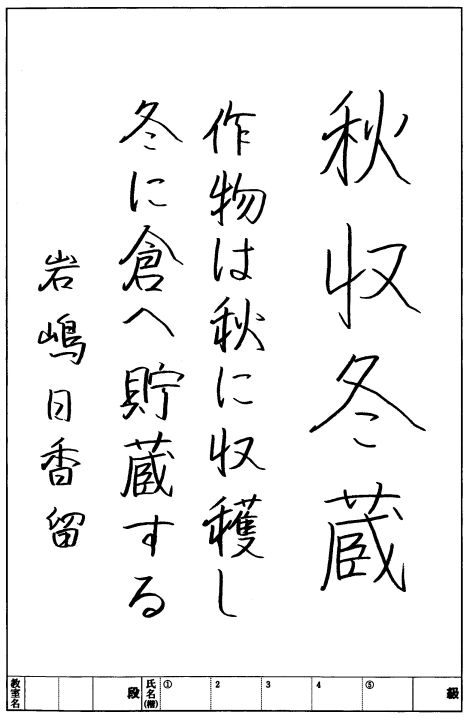 秋収冬蔵
作物は秋に収穫し
冬に倉へ貯蔵する
岩嶋日香留
級
⑤ 4 3 2 ①
氏名(楷)
段
教室名